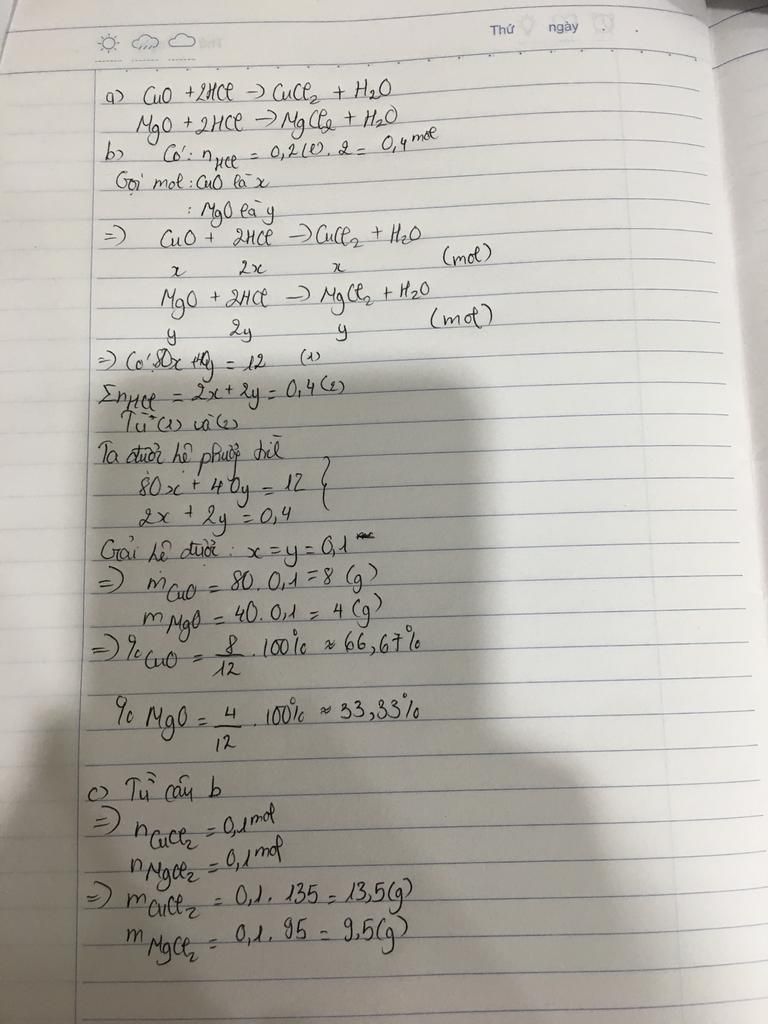 Thứ ngày
a) CuO + 2HCl -> CuCl₂ + H₂O
MgO + 2HCl -> MgCl₂ + H₂O
b) Có: nHCl = 0,2(l) . 2 = 0,4 mol
Gọi mol : CuO là x
: MgO là y
=> CuO + 2HCl -> CuCl₂ + H₂O
x 2x x (mol)
MgO + 2HCl -> MgCl₂ + H₂O
y 2y y (mol)
=> Có 80x + 40y = 12 (1)
ΣnHCl = 2x + 2y = 0,4 (2)
Từ (1) và (2)
Ta được hệ
80x + 40y = 12 }
2x + 2y = 0,4
Giải hệ được : x = y = 0,1
=> mCuO = 80 . 0,1 = 8 (g)
mMgO = 40 . 0,1 = 4 (g)
=> %CuO = 8/12 . 100% ≈ 66,67%
% MgO = 4/12 . 100% ≈ 33,33%
c) Từ câu b
=> nCuCl₂ = 0,1 mol
nMgCl₂ = 0,1 mol
=> mCuCl₂ = 0,1 . 135 = 13,5 (g)
mMgCl₂ = 0,1 . 95 = 9,5 (g)